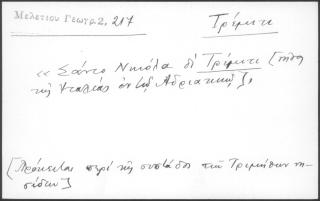 Μελετίου Γεωγρ. 2, 217 Τρέμιτι
« Σάντο Νικόλα δὶ Τρέμιτι [νῆσος
τῆς Ἰταλίας ἐν τῇ Ἀδριατικῇ]»
[Πρόκειται περὶ τῆς συστάδος τῶν Τριμήτων νη-
σίδων]